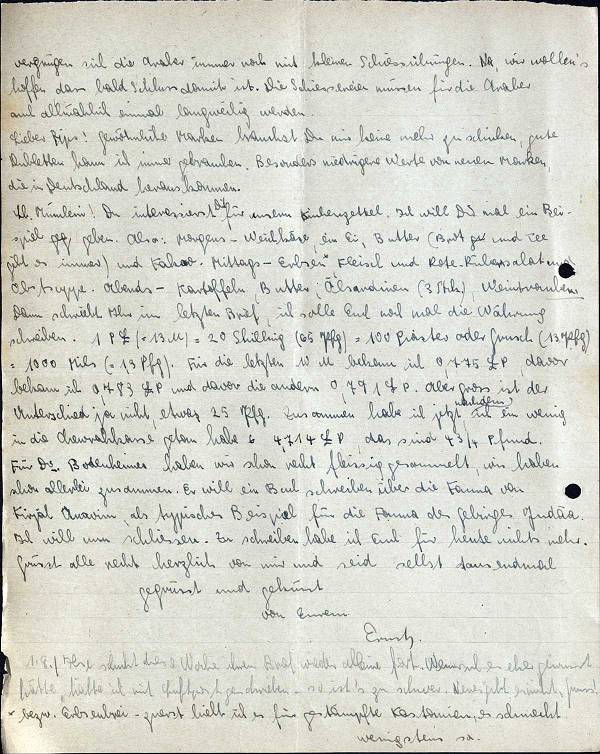 vergnügen sich die Araber immer noch mit kleinen Schiessübungen. Na, wir wollen's
hoffen dass bald Schluss damit ist. Die Schiessereien müssen für die Araber
auch allmählich einmal langweilig werden.
Lieber Pips! Gewöhnliche Marken brauchst Du mir keine mehr zu schicken, gute
Dubletten kann ich immer gebrauchen. Besonders niedrigere Werte von neuen Marken,
die in Deutschland herauskommen.
Lb. Mimlein! Du interessierst Dich für unseren Küchenzettel. Ich will Dir mal ein Bei-
spiel geben. Also: Morgens - Weichkäse, ein Ei, Butter (Brot und Tee
gibt es immer) und Kakao. Mittags - Erbsen* Fleisch und Rote-Rübensalat und
Obstsuppe. Abends - Kartoffeln, Butter, Ölsardinen (3 Stck), Weintrauben.
Dann schreibt Ihr im letzten Brief, ich solle Euch noch mal die Währung
schreiben. 1 P£ (=13 M) = 20 Shilling (65 Pfg) = 100 Piaster oder Grusch (13 Pfg)
= 1000 Mils (= 1,3 Pfg). Für die letzten 10 M bekam ich 0,775 £P, davor
bekam ich 0,783 £P und davor die andern 0,791 £P. Aber gross ist der
Unterschied ja nicht, etwa 25 Pfg. Zusammen habe ich jetzt, nachdem ich ein wenig
in die Chewrahkasse getan habe 4,714 £P, das sind 4 3/4 Pfund.
Für Dr. Bodenheimer haben wir schon recht fleissig gesammelt, wir haben
schon allerlei zusammen. Er will ein Buch schreiben über die Fauna von
Kirjat Anavim, als typisches Beispiel für die Fauna des Gebirges Judäa.
Ich will nun schliessen. Zu schreiben habe ich Euch für heute nichts mehr.
Grüsst alle recht herzlich von mir und seid selbst tausendmal
gegrüsst und geküsst
von Eurem
Ernst.
1.9./ Ilse schickt diese Woche ihren Brief wieder alleine fort. Wenn ich es eher gewusst
hätte, hätte ich mit Luftpost geschrieben - so ist's zu schwer. Neues gibt es nicht, Gruss!
* bezw. Erbsenbrei - zuerst hielt ich es für gestampfte Kastanien, es schmeckt
wenigstens so.